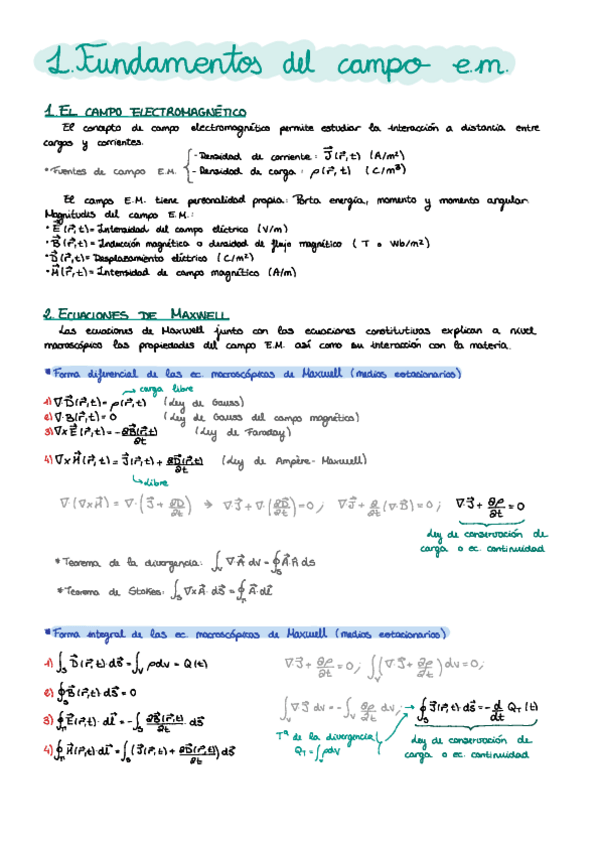 1. Fundamentos del campo e.m.
1. EL CAMPO ELECTROMAGNÉTICO
El concepto de campo electromagnético permite estudiar la interacción a distancia entre
cargas y corrientes.
• Fuentes de campo E.M. { - Densidad de corriente: J⃗(r⃗,t) (A/m²)
- Densidad de carga: ρ(r⃗,t) (C/m³)
El campo E.M. tiene personalidad propia: Porta energía, momento y momento angular.
Magnitudes del campo E.M.:
• E⃗(r⃗,t) = Intensidad del campo eléctrico (V/m)
• B⃗(r⃗,t) = Inducción magnética o densidad de flujo magnético (T o Wb/m²)
• D⃗(r⃗,t) = Desplazamiento eléctrico (C/m²)
• H⃗(r⃗,t) = Intensidad de campo magnético (A/m)
2. ECUACIONES DE MAXWELL
Las ecuaciones de Maxwell junto con las ecuaciones constitutivas explican a nivel
macroscópico las propiedades del campo E.M. así como su interacción con la materia.
* Forma diferencial de las ec. macroscópicas de Maxwell (medios estacionarios)
→ carga libre
1) ∇·D⃗(r⃗,t) = ρ(r⃗,t) (Ley de Gauss)
2) ∇·B⃗(r⃗,t) = 0 (Ley de Gauss del campo magnético)
3) ∇×E⃗(r⃗,t) = -∂B⃗(r⃗,t)/∂t (Ley de Faraday)
4) ∇×H⃗(r⃗,t) = J⃗(r⃗,t) + ∂D⃗(r⃗,t)/∂t (Ley de Ampère-Maxwell)
↳ Libre
∇(∇×H⃗) = ∇·(J⃗ + ∂D⃗/∂t) → ∇J⃗ + ∇·(∂D⃗/∂t) = 0; ∇J⃗ + ∂/∂t (∇·D⃗) = 0; ∇·J⃗ + ∂ρ/∂t = 0
Ley de conservación de
carga o ec. continuidad
* Teorema de la divergencia: ∫ᵥ ∇·A⃗ dv = ∮ₛ A⃗·n̂ ds
* Teorema de Stokes: ∫ₛ ∇×A⃗·dS⃗ = ∮ A⃗·dl⃗
* Forma integral de las ec. macroscópicas de Maxwell (medios estacionarios)
1) ∫ₛ D⃗(r⃗,t)·dS⃗ = ∫ᵥ ρdv = Q(t) ∇J⃗ + ∂ρ/∂t = 0; ∫∫(∇·J⃗ + ∂ρ/∂t) dv = 0;
2) ∮ₛ B⃗(r⃗,t)·dS⃗ = 0
3) ∮E⃗(r⃗,t)·dl⃗ = -∫ₛ ∂B⃗(r⃗,t)/∂t · dS⃗ ∫ᵥ ∇J⃗ dv = -∫ᵥ ∂ρ/∂t dv; → ∮ₛ J⃗(r⃗,t)·dS⃗ = -d/dt Q_T(t)
4) ∮H⃗(r⃗,t)·dl⃗ = ∫ₛ (J⃗(r⃗,t) + ∂D⃗(r⃗,t)/∂t) dS⃗
Tª de la divergencia
Q_T = ∫ᵥ ρdv
Ley de conservación de
carga o ec. continuidad